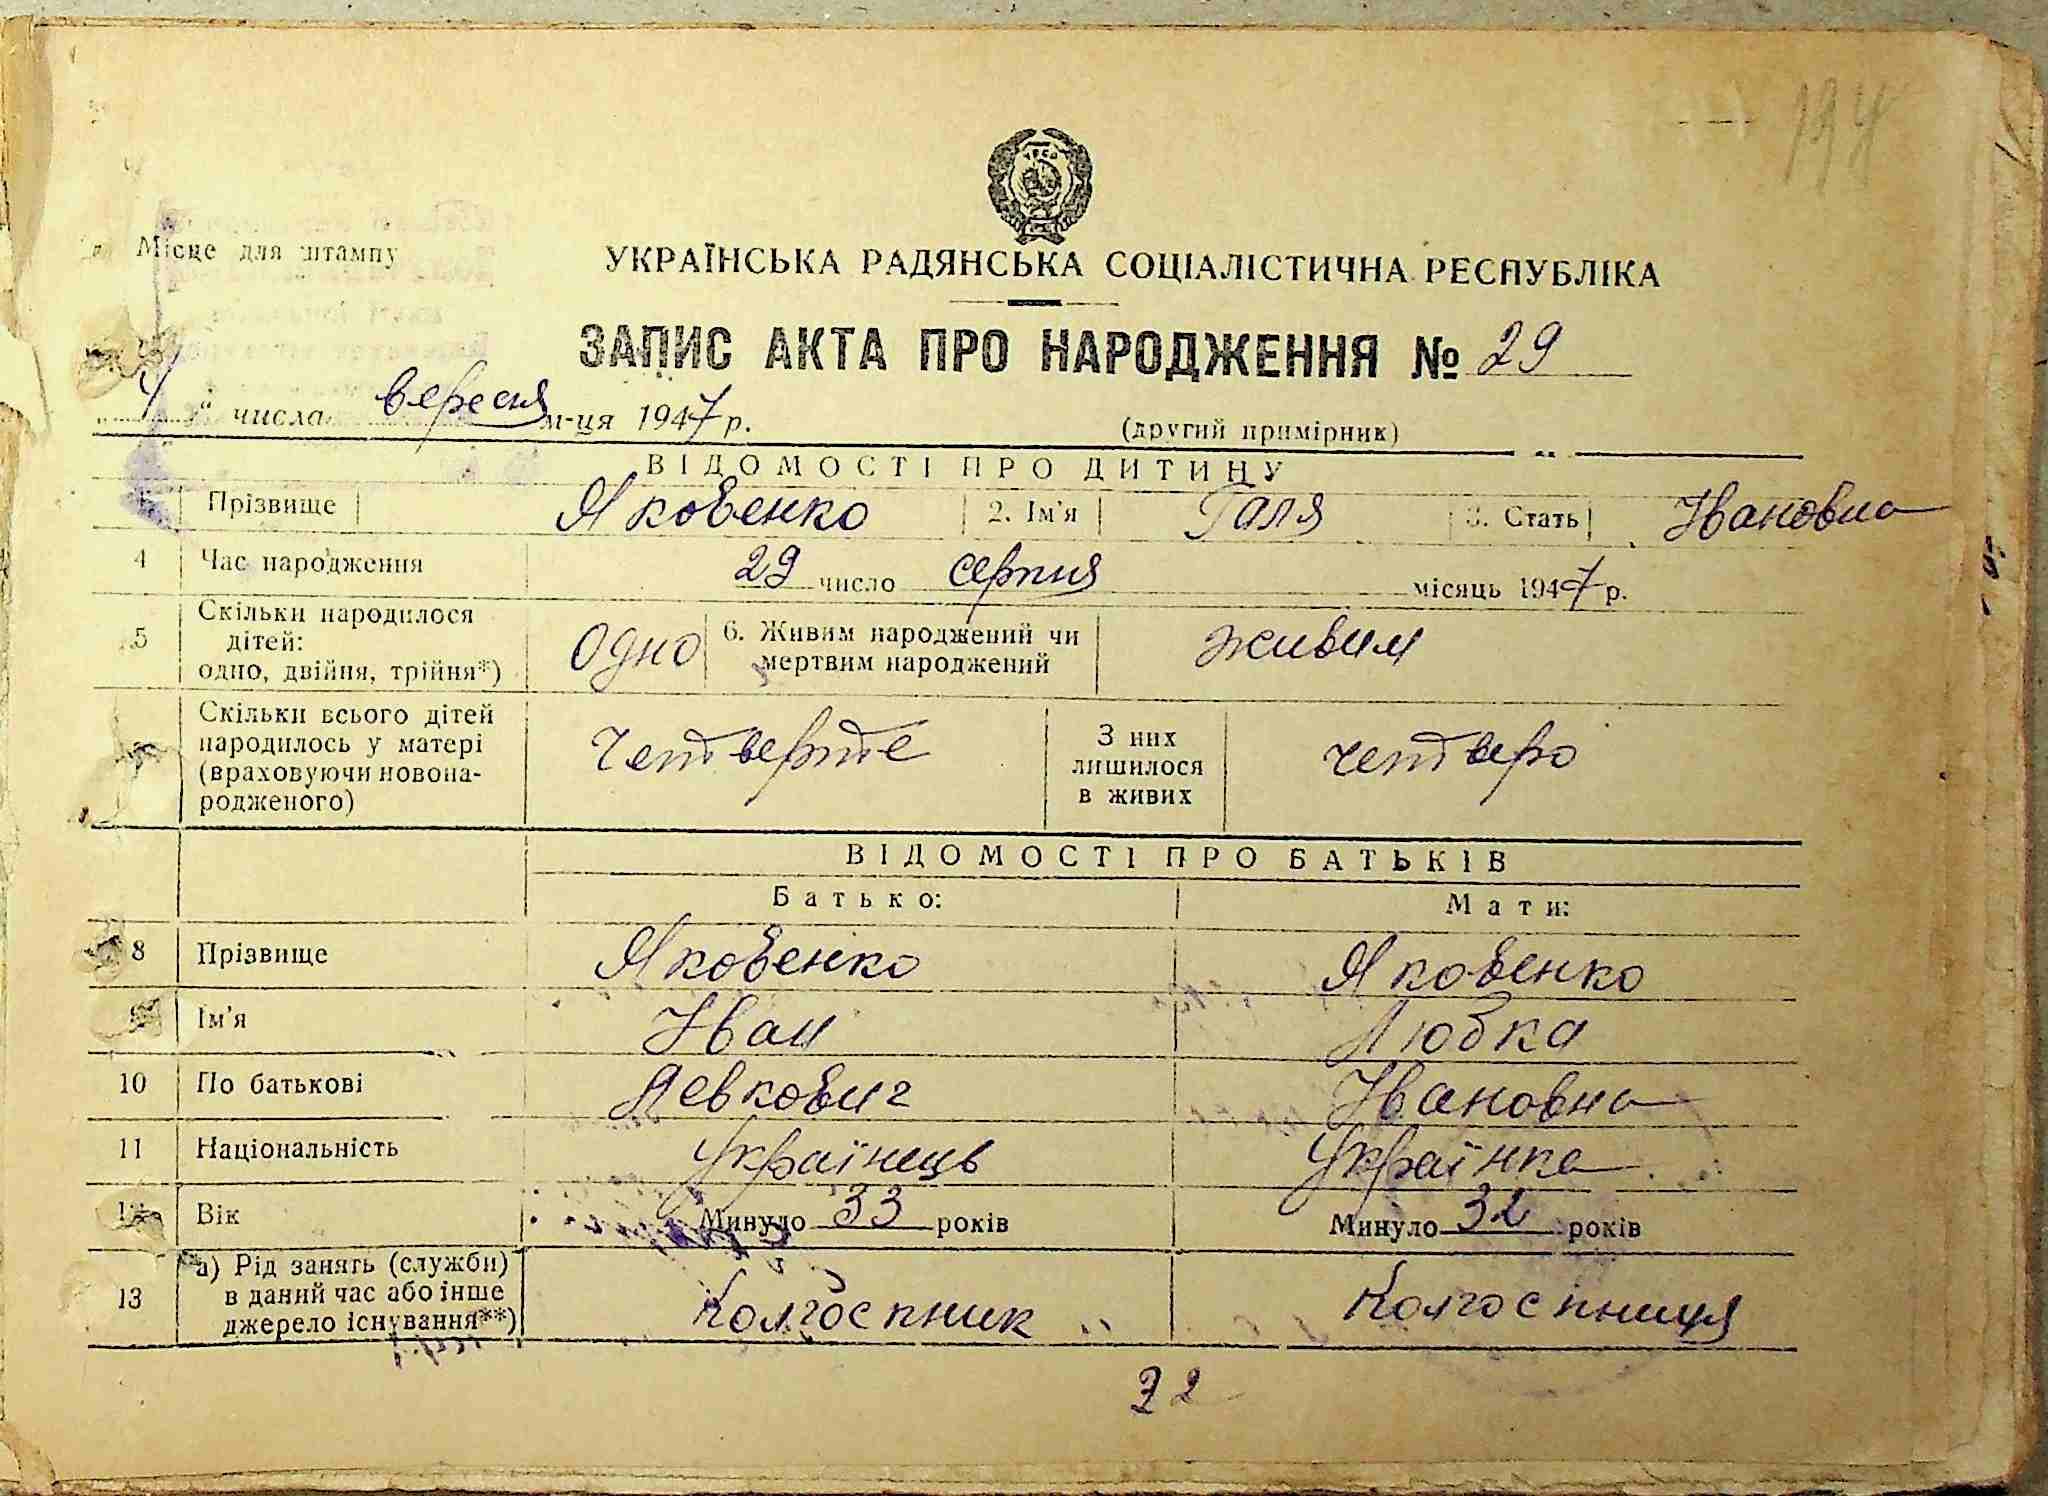 194
Місце для штампу
УКРАЇНСЬКА РАДЯНСЬКА СОЦІАЛІСТИЧНА РЕСПУБЛІКА
ЗАПИС АКТА ПРО НАРОДЖЕННЯ № 29
„4“ числа вересня м-ця 1947 р. (другий примірник)
ВІДОМОСТІ ПРО ДИТИНУ
Прізвище Яковенко 2. Ім'я Галя 3. Стать Івановна
4 Час народження 29 число серпня місяць 1947 р.
5 Скільки народилося дітей: одно, двійня, трійня*) Одно 6. Живим народжений чи мертвим народжений живим
Скільки всього дітей народилось у матері (враховуючи новонародженого) Четверте З них лишилося в живих четверо
ВІДОМОСТІ ПРО БАТЬКІВ
Батько: Мати:
8 Прізвище Яковенко Яковенко
Ім'я Іван Любка
10 По батькові Левкович Івановна
11 Національність Українець Українка
12 Вік Минуло 33 років Минуло 32 років
13 а) Рід занять (служби) в даний час або інше джерело існування**) Колгоспник Колгоспниця
32